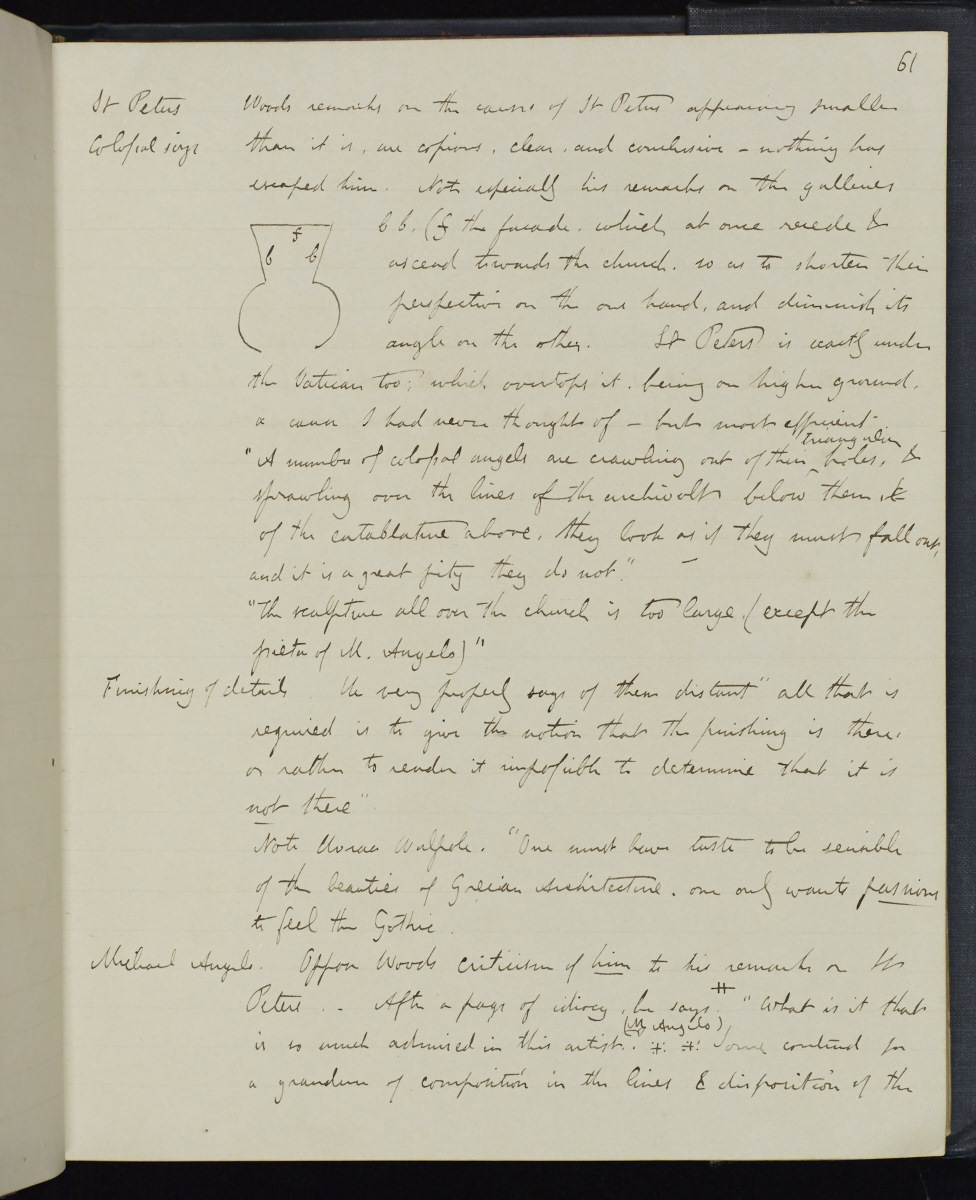 61
St Peters Woods remarks on the causes of St Peters appearing smaller
Colossal size than it is, are copious, clear, and conclusive - nothing has
escaped him. Note especially his remarks on the galleries
b b. (f the facade. which at once recede &
ascend towards the church. so as to shorten their
perspective on the one hand, and diminish its
angle on the other. St Peters is exactly under
f
b b
the Vatican too; which overtops it. being on higher ground.
a cause I had never thought of - but most efficient
triangular
"A number of colossal angels are crawling out of their ^ holes, &
sprawling over the lines of the archivolts below them, &
of the entablature above. they look as if they must fall out,
and it is a great pity they do not". -
"The sculpture all over the church is too large. (except the
pieta of M. Angelo)"
Finishing of details. He very properly says of them distant "all that is
required is to give the notion that the finishing is there.
or rather to render it impossible to determine that it is
not there".
Note Horace Walpole. "One must have taste to be sensible
of the beauties of Grecian Architecture. one only wants passions
to feel the Gothic.
Michael Angelo. Oppose Woods criticism of him to his remarks on St
Peters. - After a page of idiocy, he says. "What is it that
(M Angelo)
is so much admired in this artist. Some contend for
a grandeur of composition in the lines & disposition of the